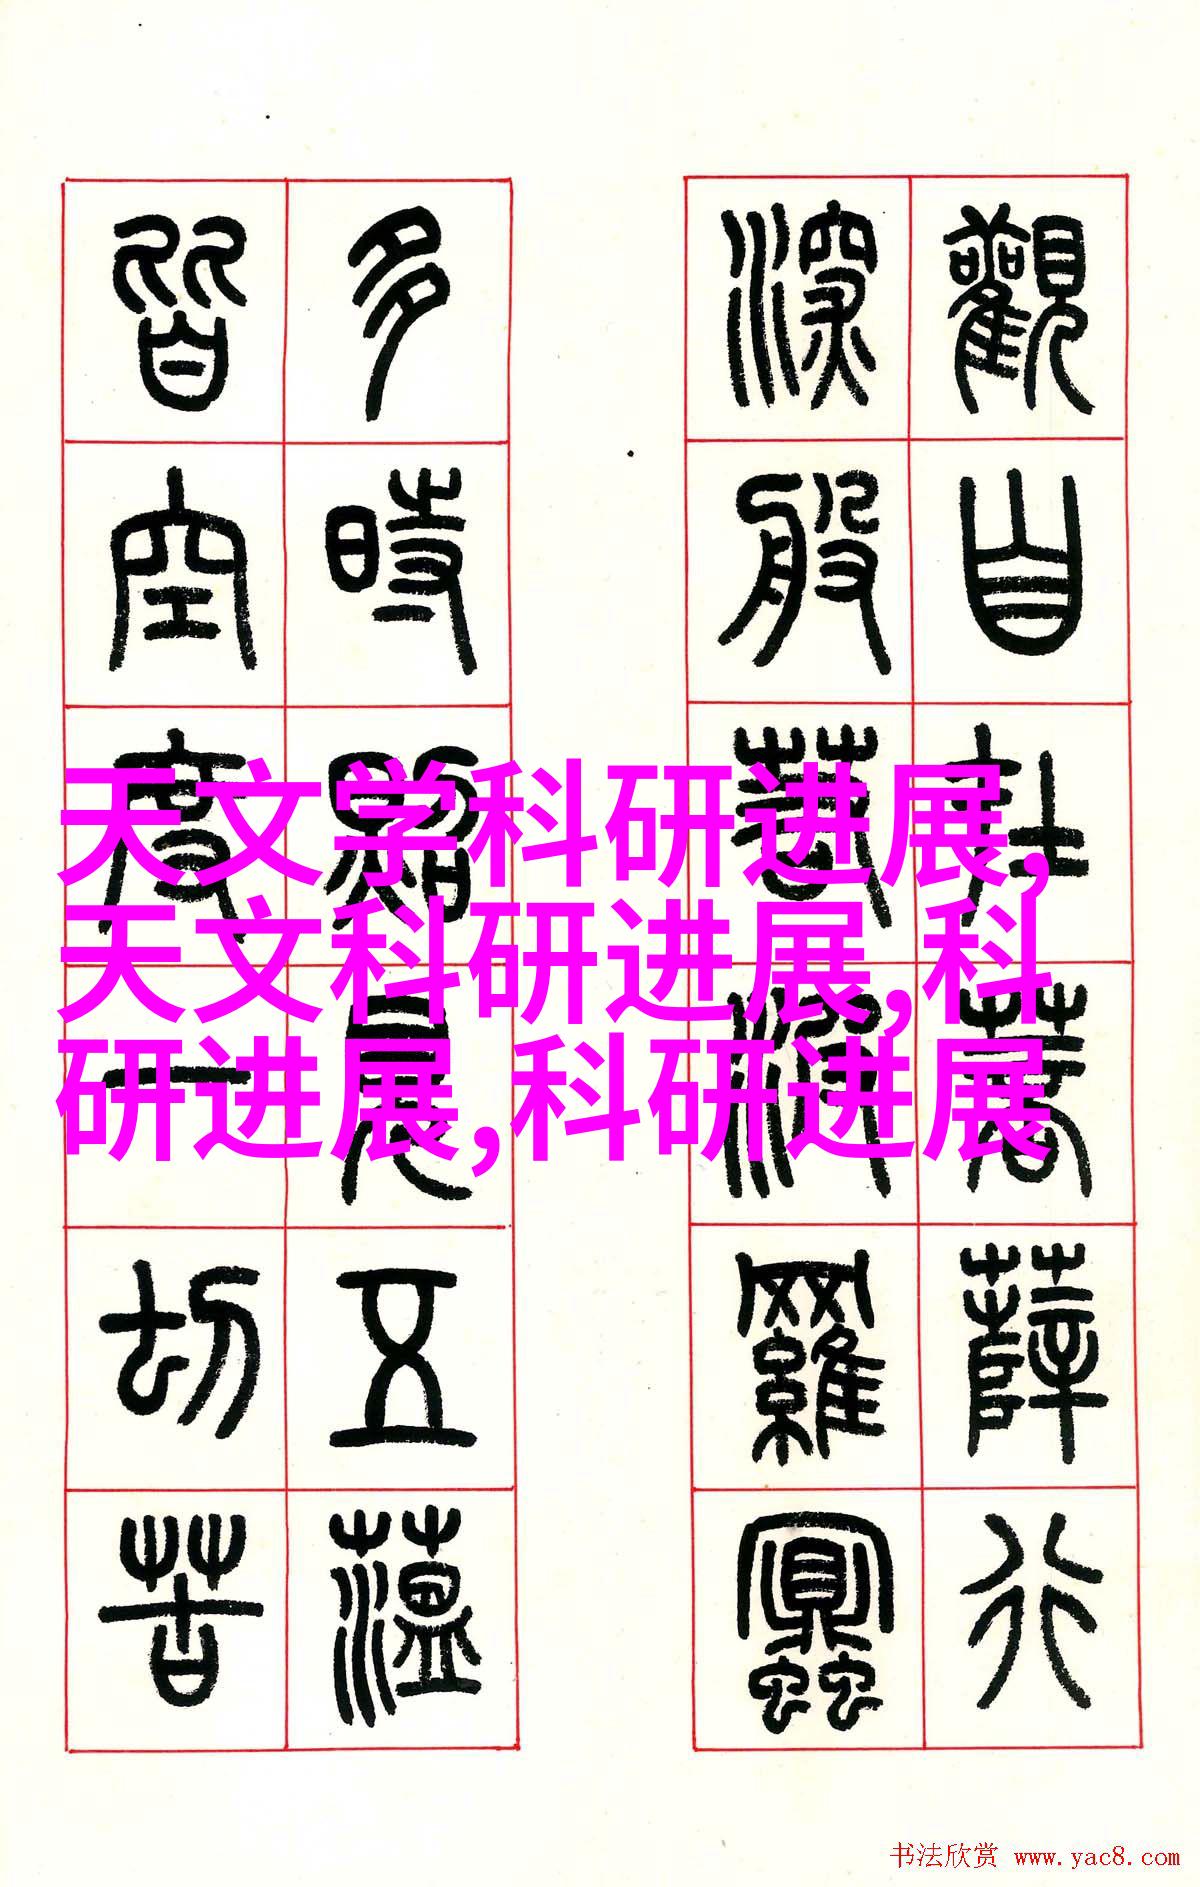 觀自在菩薩行
深般若波羅蜜
多時照見五蘊
皆空度一切苦
天文学科研进展,
天文科研进展,科
研进展,科研进展
书法欣赏 www.yac8.com